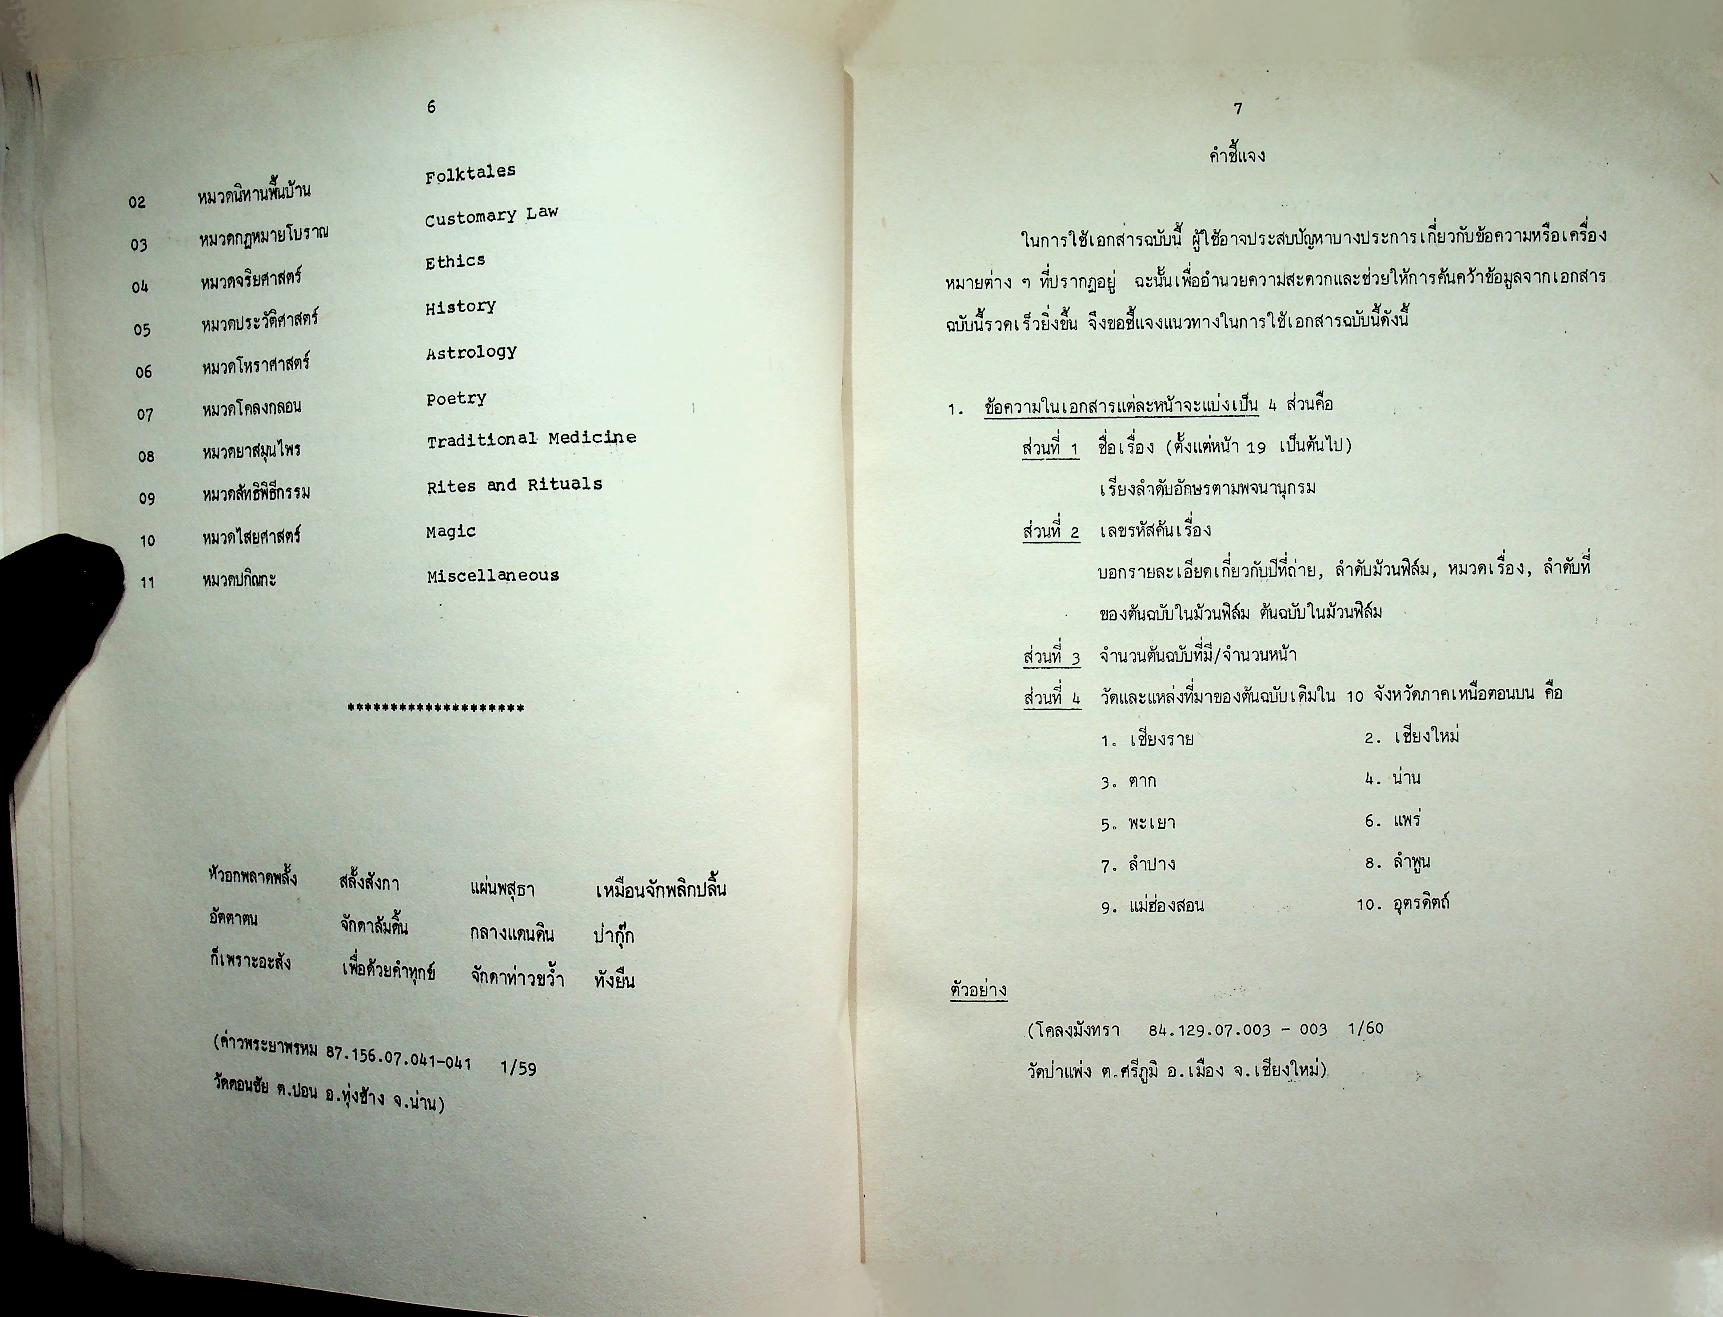 6
02 หมวดนิทานพื้นบ้าน Folktales
03 หมวดกฎหมายโบราณ Customary Law
04 หมวดจริยศาสตร์ Ethics
05 หมวดประวัติศาสตร์ History
06 หมวดโหราศาสตร์ Astrology
07 หมวดโคลงกลอน Poetry
08 หมวดยาสมุนไพร Traditional Medicine
09 หมวดลัทธิพิธีกรรม Rites and Rituals
10 หมวดไสยศาสตร์ Magic
11 หมวดปกิณกะ Miscellaneous
********************
หัวอกพลาดพลั้ง สลั้งสังกา แผ่นพสุธา เหมือนจักพลิกปลิ้น
อัตตาตน จักดาล้มดิ้น กลางแดนดิน ป่ากุ๊ก
ก็เพราะอะสัง เพื่อด้วยคำทุกข์ จักดาท่าวขว้ำ ทังยืน
(ค่าวพระยาพรหม 87.156.07.041-041 1/59
วัดดอนชัย ต.ปอน อ.ทุ่งช้าง จ.น่าน)
7
คำชี้แจง
ในการใช้เอกสารฉบับนี้ ผู้ใช้อาจประสบปัญหาบางประการเกี่ยวกับข้อความหรือเครื่อง
หมายต่าง ๆ ที่ปรากฏอยู่ ฉะนั้นเพื่ออำนวยความสะดวกและช่วยให้การค้นคว้าข้อมูลจากเอกสาร
ฉบับนี้รวดเร็วยิ่งขึ้น จึงขอชี้แจงแนวทางในการใช้เอกสารฉบับนี้ดังนี้
1. ข้อความในเอกสารแต่ละหน้าจะแบ่งเป็น 4 ส่วนคือ
ส่วนที่ 1 ชื่อเรื่อง (ตั้งแต่หน้า 19 เป็นต้นไป)
เรียงลำดับอักษรตามพจนานุกรม
ส่วนที่ 2 เลขรหัสค้นเรื่อง
บอกรายละเอียดเกี่ยวกับปีที่ถ่าย, ลำดับม้วนฟิล์ม, หมวดเรื่อง, ลำดับที่
ของต้นฉบับในม้วนฟิล์ม ต้นฉบับในม้วนฟิล์ม
ส่วนที่ 3 จำนวนต้นฉบับที่มี/จำนวนหน้า
ส่วนที่ 4 วัดและแหล่งที่มาของต้นฉบับเดิมใน 10 จังหวัดภาคเหนือตอนบน คือ
1. เชียงราย 2. เชียงใหม่
3. ตาก 4. น่าน
5. พะเยา 6. แพร่
7. ลำปาง 8. ลำพูน
9. แม่ฮ่องสอน 10. อุตรดิตถ์
ตัวอย่าง
(โคลงมังทรา 84.129.07.003 - 003 1/60
วัดป่าแพ่ง ต.ศรีภูมิ อ.เมือง จ.เชียงใหม่)